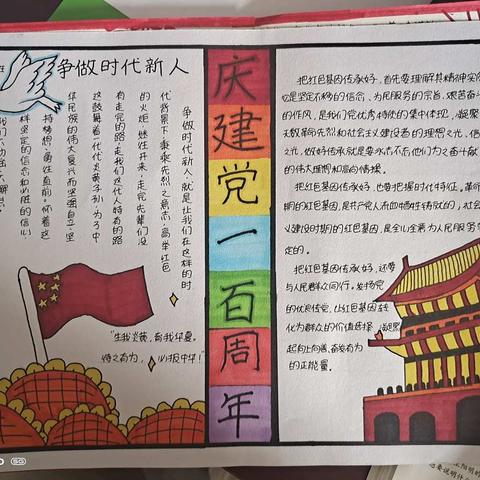 争做时代新人
争做时代新人,就是让我们在这样的时
代背景下,秉乘先烈之意志,高举红色
的火炬,继往开来,走完先辈们没
有走完的路,走我们这代人特有的路
这鼓舞着一代代炎黄子孙,为了中
华民族的伟大复兴而坚强自立,坚
持梦想,勇往直前。怀着这
样坚定的信念和必胜的信心
"生我炎黄,育我华夏。
恃之有为,必报中华!"
庆
建
党
一
百
周
年
把红色基因传承好,首先要理解其精神实
是坚定不移的信念、为民服务的宗旨、艰苦奋
的作风,是我们党优秀特性的集中体现,凝聚
无数革命先烈和社会主义建设者的理想之光、信
之光,做好传承就是要永志不忘他们为之奋斗献
的伟大理想和高尚情操。
把红色基因传承好,也要把握时代特征。革命
期的红色基因,是共产党人流血牺牲铸就的,社会
义建设时期的红色基因,是全心全意为人民服务
定的。
把红色基因传承好,还要
与人民群众同行。发扬党
的优良传党,让红色基因转
化为群众的价值选择,凝聚
起向上向善、奋发有为
的正能量。